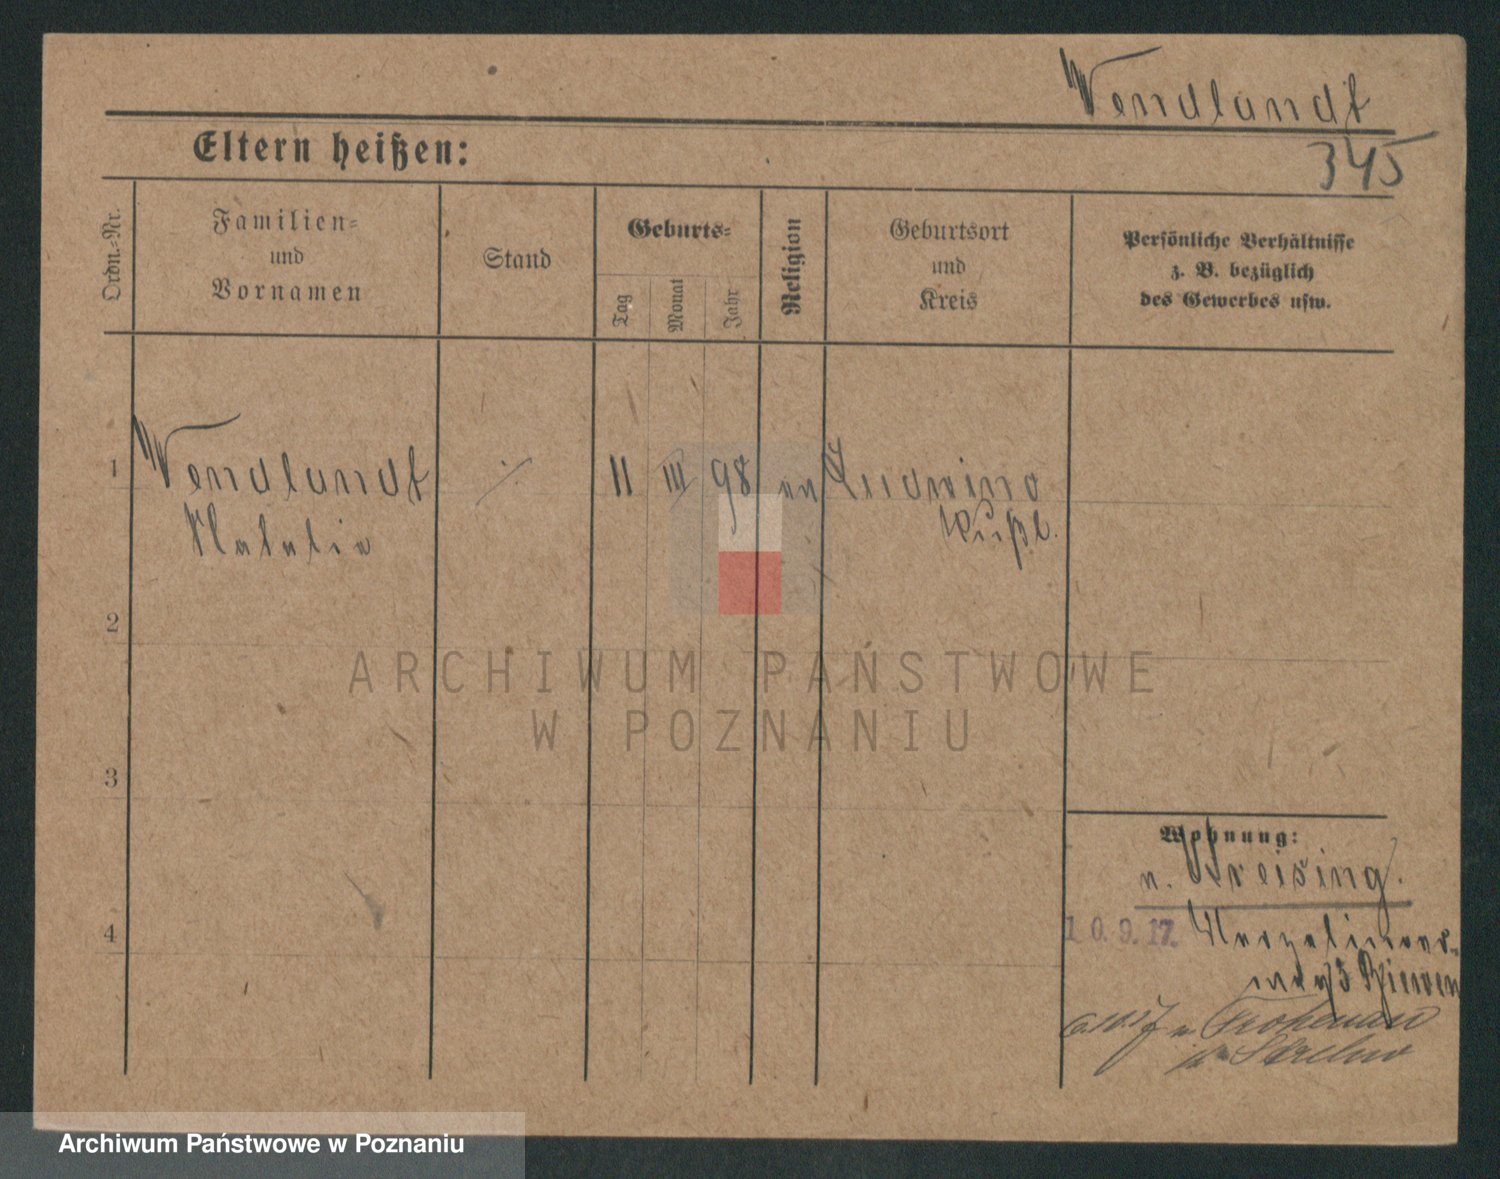 Wendlandt
345
Eltern heißen:
Ordn.-Nr.
Familien-
und
Vornamen
Stand
Geburts-
Tag
Monat
Jahr
Religion
Geburtsort
und
Kreis
Persönliche Verhältnisse
z. B. bezüglich
des Gewerbes usw.
1 Wendlandt ⁒ 11 III 98 Ludwina
Natalie
2
3
4
ARCHIWUM PAŃSTWOWE
W POZNANIU
Wohnung:
n. Kreising.
10.9.17.
n.
Strelno
Archiwum Państwowe w Poznaniu